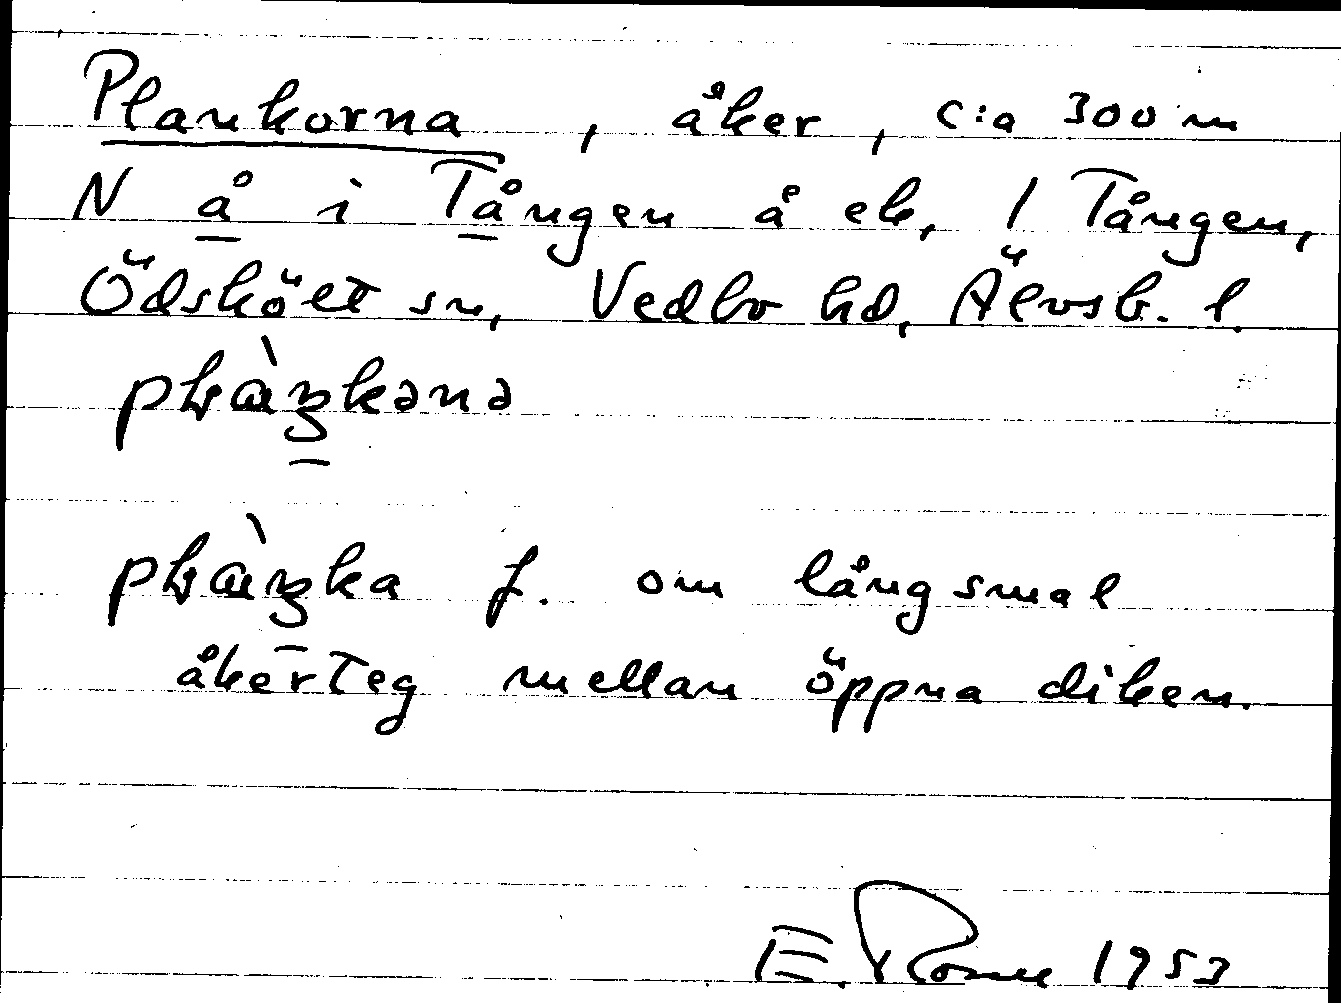 Plankorna, åker, c:a 300 m
N å i Tången å ek, 1 Tången,
Ödskölt sn, Vedbo hd, Älvsb. l.
plàŋkənə
plàŋka f. om långsmal
åkerteg mellan öppna diken.
E. 1953